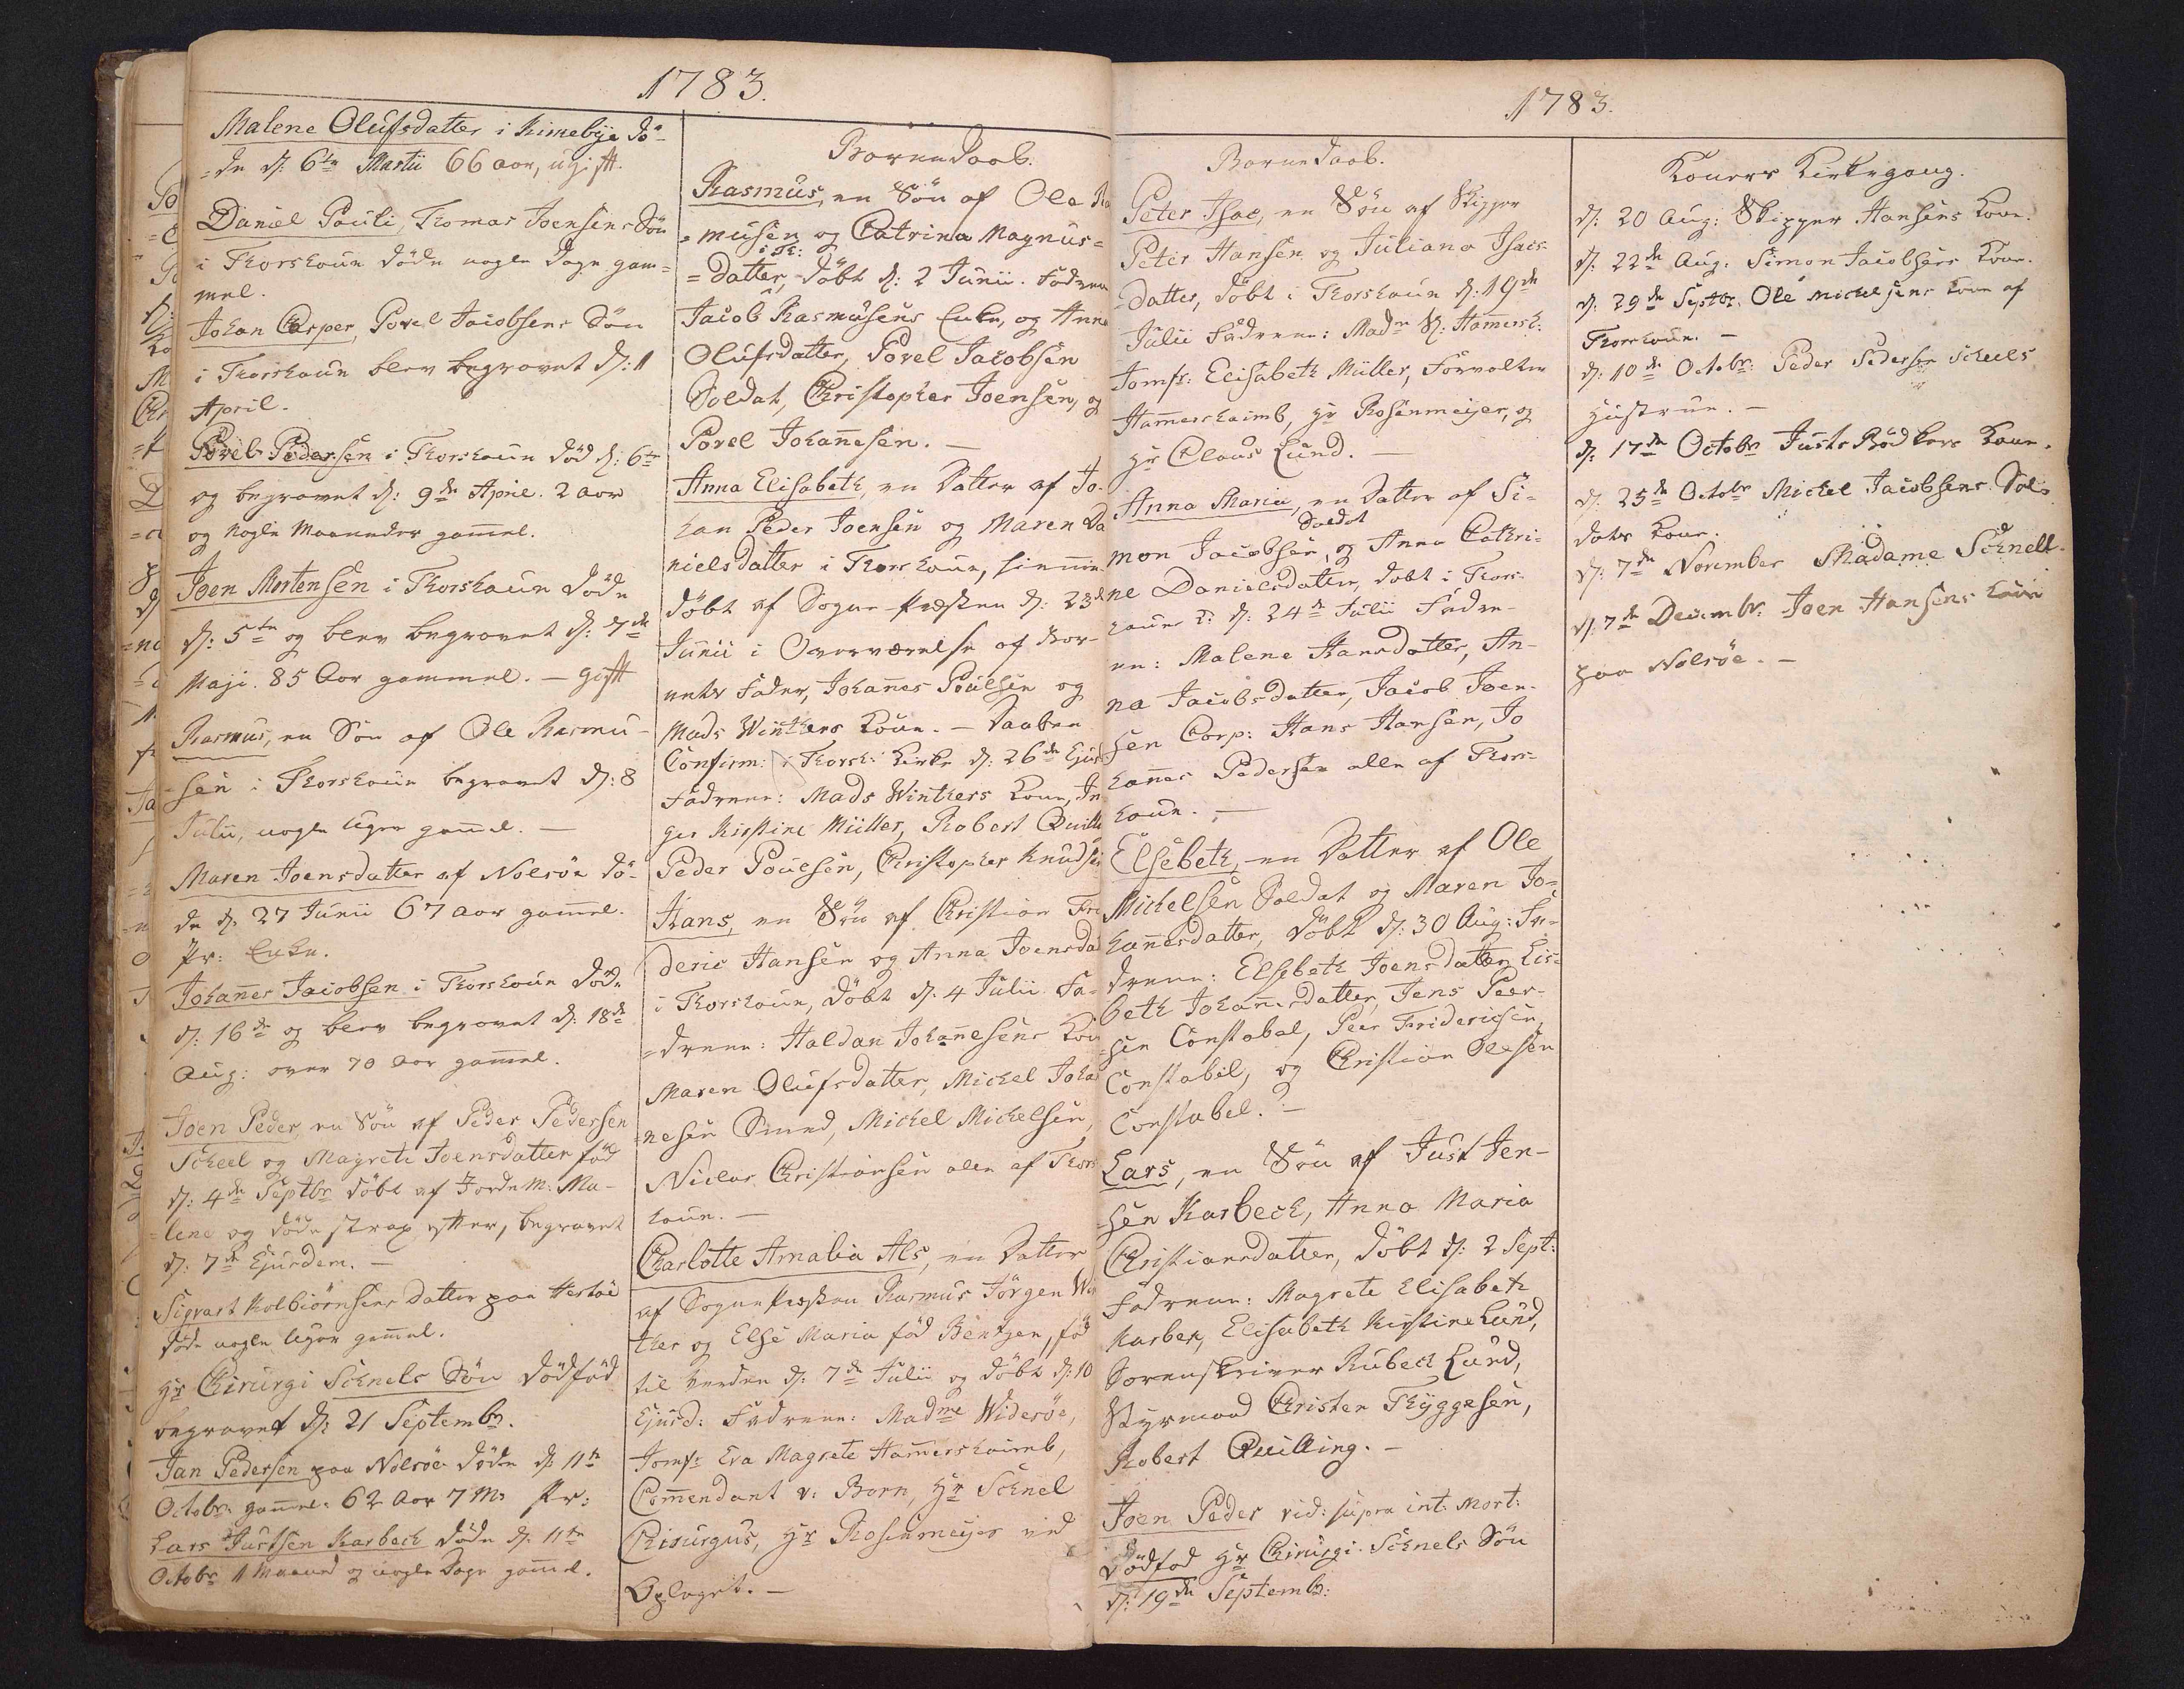 1783.
Malene Olufsdatter i Kirkebye dö-
=de d: 6te Martii 66 aar, ugift.
Daniel Pauli, Thomas Joensens Sön
i Thorshaun döde nogle Dage gam=
mel.
Johan Casper, Povel Jacobsens Sön
i Thorshaun blev begravet d: 11
April.
Povel Pedersen i Thorshaun död d: 6te
og begravet d: 9de April. 2 aar
og nogle Maaneder gam̄el.
Joen Mortensen i Thorshaun döde
d: 5te og blev begravet d: 7de
Maji. 85 Aar gammel. – gift
Rasmus, en Sön af Ole Rasmu-
sen i Thorshaun begravet d: 8
Julii, nogle Uger gam̄el. –
Maren Joensdatter af Nolsöe dö-
de d: 27 Junii 67 aar gam̄el.
pr: Enke.
Johan̄es Jacobsen i Thorshaun döde
d: 16de og blev begravet d: 18de
Aug: over 70 Aar gam̄el.
Joen Peder, en Sön af Peder Pedersen
Scheel og Magrete Joensdatter föd
d: 4de Septbr döbt af Jordem: Ma-
=lene og döde strax efter, begravet
d: 7de Ejusdem. –
Sigvart Kolbiörnsens Datter paa Hestöe
döde nogle Uger gam̄el.
Hr Chirurgi Schnels Sön dödföd
begravet d: 21 Septembr.
Jan Pedersen paa Nolsöe döde d: 11te
Octobr. gam̄el: 62 Aar 7 M: pr:
Lars Justsen Karbech döde d: 11te
Octobr 1 Maaned og nogle Dage gam̄el.
Börnedaab.
Rasmus, en Sön af Ole Ra
=musen og Catrina Magnus=
i Th:
=datter, döbt d: 2 Junii. Fadrene
Jacob Rasmusens Enke, og Anna
Olufsdatter, Povel Jacobsen
Soldat, Christopher Joensen, og
Povel Johan̄esen. –
Anna Elisabeth, en Datter af Jo-
han Peder Joensen og Maren Da
nielsdatter i Thorshaun, hiemme
döbt af Sogne-Præsten d: 23de
Junii i Overværelse af Bar-
nets Fader, Johan̄es Poulsen og
Mads Winthers Kone. – Daaben
Confirm: i Thorsh: Kirke d: 26de Ejusd
Fadrene: Mads Winthers Kone, In
ger Kirstine Müller, Robert Quilli
Peder Poulsen, Christopher Knudsen
Hans, en Sön af Christian Fri
deric Hansen og Anna Joensdat
i Thorshaun, döbt d: 4 Julii Fa-
=drene: Haldan Johan̄esens Kon
Maren Olufsdatter, Michel Johan
=nesen Smed, Michel Michelsen,
Niclas Christiansen alle af Thors
haun. –
Charlotte Amalia Als, en Datter
af Sognepræsten Rasmus Jörgen Win
ther og Else Maria föd Bentzen, föd
til Verden d: 7de Julii og döbt d: 10
Ejusd: Fadrene: Madme Wideröe,
Jomfr Eva Magrete Ham̄ershaimb,
Com̄endant v: Born, Hr Schnel
Chirurgus, Hr Rosenmeyer ved
Oplaget. –
1783.
Börnedaab.
Peter Isac, en Sön af Skipper
Peter Hansen og Juliana Isacs-
datter, döbt i Thorshaun d: 19de
Julii Fadrene: Madm S: Ham̄ersh:
Jomfr: Elisabeth Müller, Forvalter
Ham̄ershaimb, Hr Rosenmeyer, og
Hr Claus Lund. –
Anna Maria, en Datter af Si=
Soldat
mon Jacobsen, og Anna Cathri=
ne Danielsdatter, döbt i Thors-
hauns K: d: 24de Julii Fadre-
ne: Malene Hansdatter, An-
na Jacobsdatter, Jacob Joen-
sen Corp: Hans Hansen, Jo
han̄es Pedersen alle af Thors-
haun. –
Elsebeth, en Datter af Ole
Michelsen Soldat og Maren Jo=
han̄esdatter, döbt d: 30 Aug: Fa-
drene: Elsebeth Joensdatter, Lis-
beth Johan̄esdatter, Jens Peer-
sen Constabel, Peer Fridericsen,
Constabel, og Christian Olesen
Constabel. –
Lars, en Sön af Just Jen-
sen Karbech, Anna Maria
Christiansdatter, döbt d: 2 Sept:
Fadrene: Magrete Elisabeth
Karbek, Elisabeth Kirstine Lund,
Sorenskriver Rubech Lund,
Styrmand Christen Thyggesen,
Robert Quilling. –
Joen Peder vid: supra int: Mort:
Dödfod Hr Chirurgi Schnels Sön
d: 19de Septembr:
Koners Kirkegang.
d: 20 Aug: Skipper Hansens Kone.
d: 22de Aug: Simon Jacobsens Kone.
d: 29de Septbr. Ole Michelsens Kone af
Thorshaun. –
d: 10de Octobr: Peder Pedersen Scheels
Hustrue. –
d: 17de Octobr Justs Bödkers Kone.
d: 25de Octobr Michel Jacobsens Sol=
dats Kone.
d: 7de November Madame Schnell.
d: 7de Decembr: Joen Hansens Kone
paa Nolsöe. –